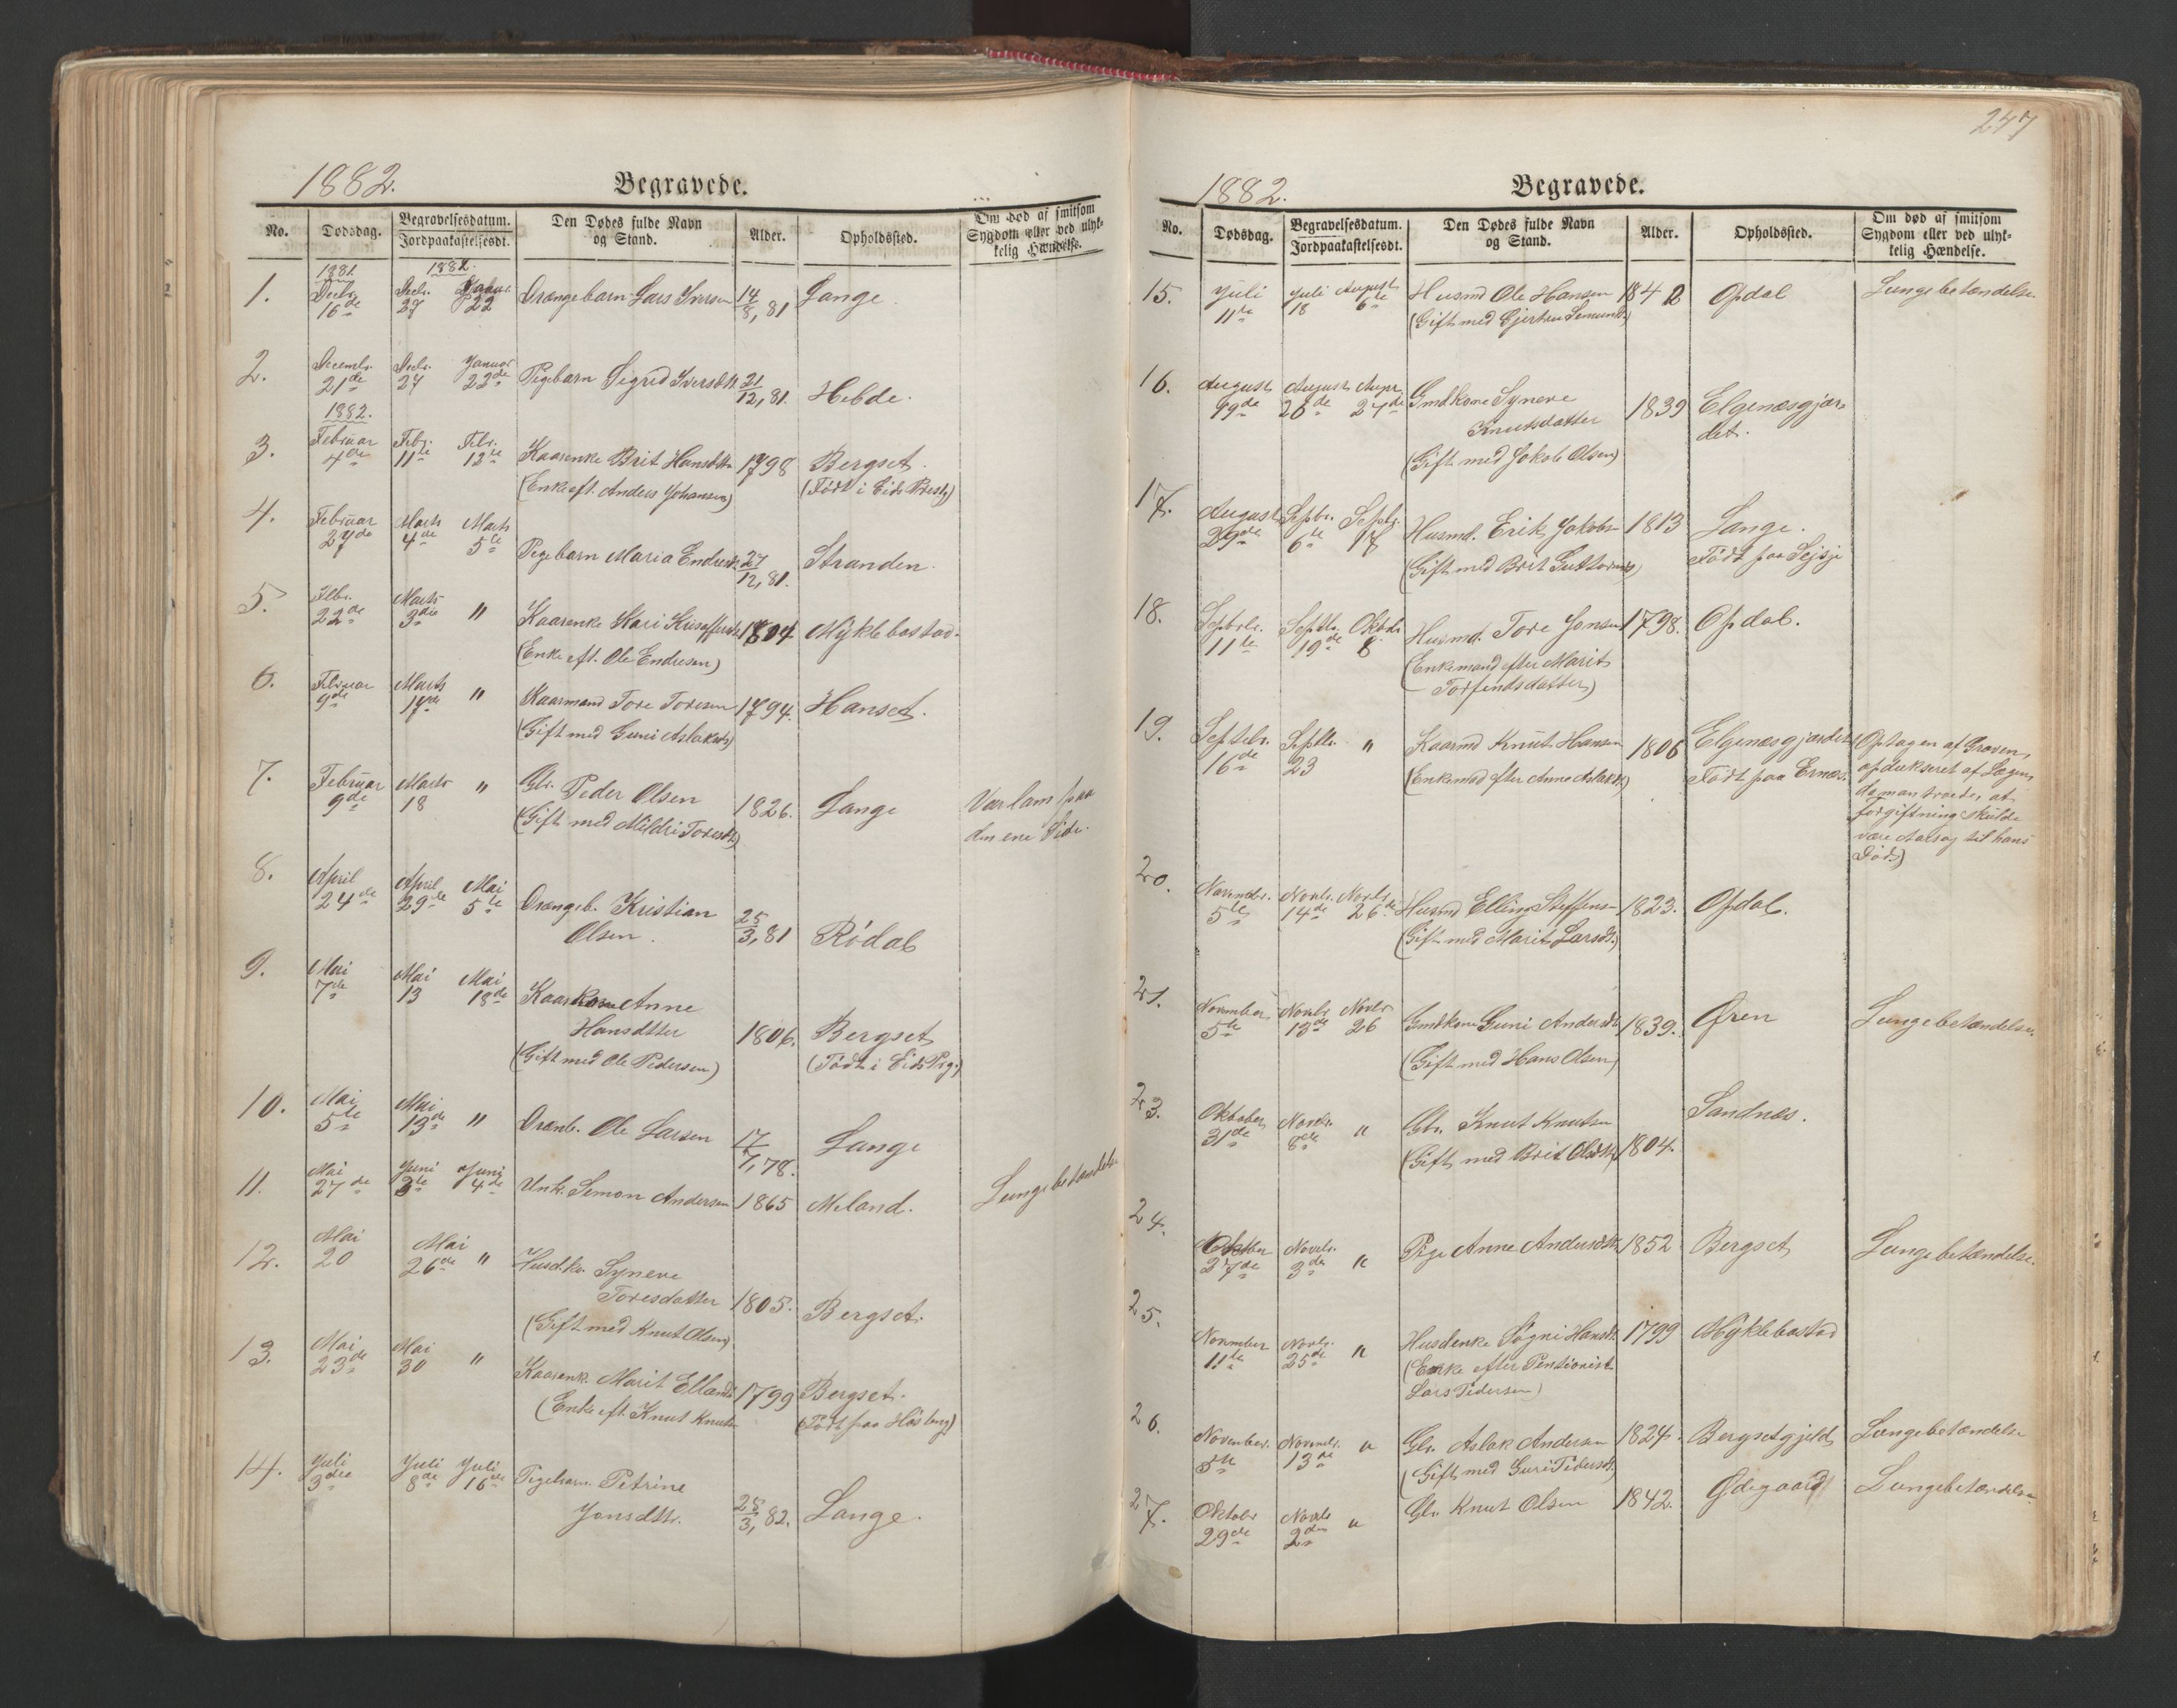 247
1882.
Begravede.
No. Dødsdag. Begravelsesdatum. Jordpaakastelsesdt. Den Dødes fulde Navn og Stand. Alder. Opholdssted. Om død af smitsom Sygdom eller ved ulyk-kelig Hændelse.
1881 1882.
1. Decbr. 16de Decbr. 27 Januar 22 Drængebarn Lars Iversen 14/8, 81 Lange
2. Decembr. 21de Decbr. 27 Januar 22de Pigebarn Sigrid Iversdtr 21/12, 81. Hebde.
1882.
3. Februar 4de Febr. 11te Febr. 12te Kaarenke Brit Hansdtr 1798 Bergset.
(Enke eft. Anders Johansen) (Født i Eids Prestg)
4. Februar 27de Marts 4de Marts 5te Pigebarn Maria Endresdt 27/12, 81. Stranden.
5. Febr. 22de Marts 3die " Kaarenke Mari 1804 Myklebostad.
(Enke eft. Ole Endresen)
6. Februar 9de Marts 17de " Kaarmand Tore Toresen 1794. Hanset.
(Gift med Guni Aslaksdt)
7. Februar 9de Marts 18 " Gbr. Peder Olsen 1826. Lange Var lam paa
(Gift med Mildri Toresdt) den ene Side.
8. April 24de April 29de Mai 5te Drængeb. Kristian
Olsen. 25/3, 81 Rödal
9. Mai 7de Mai 13 Mai 18de Kaarkone Anne
Hansdtter 1806. Bergset
(Gift med Ole Pedersen) (Født i Eids Prg.)
10. Mai 5te Mai 13de " Drænb. Ole Larsen 17/7, 78. Lange
11. Mai 27de Juni 3te Juni 4de Unk. Simon Andersen 1865 Meland. Lungebetændelse
12. Mai 20 Mai 26de " Husdko. Syneve
Toresdatter 1805. Bergset.
(Gift med Knut Olsen)
13. Mai 23de Mai 30 " Kaarenk. Marit Ellandsdt 1799 Bergset.
(Enke eft. Knut Knutsen
14. Juli 3die Juli 8de Juli 16de Pigebarn Petrine
Jonsdttr. 25/3, 82. Lange.
1882.
Begravede.
No. Dødsdag. Begravelsesdatum. Jordpaakastelsesdt. Den Dødes fulde Navn og Stand. Alder. Opholdssted. Om død af smitsom Sygdom eller ved ulyk-kelig Hændelse.
15. Juli 11te Juli 18 August 6te Husmd Ole Hansen 1842 Opdal Lungebetændelse
(Gift med Gjertru
16. August 19de August 26de Augst 27de Gmdkone Syneve
Knutsdatter 1839 Elgenæsgjær-
det.
(Gift med Jakob Olsen)
17. August 29de Septbr. 6te Septbr. 17 Husmd. Erik Jakobsn 1813 Lange.
(Gift med Brit Guttormsd) Født paa
18. Septbr. 11te Septbr. 19de Oktobr 8. Husmd. Tore Jonsen 1798. Opdal.
(Enkemand efter Marit
Torfindsdatter)
19. Septebr. 16de Septbr. 23 " Kaarmd Knut Hansen 1806 Elgenæsgjærdet (Optagen af Graven,
(Enkemd efter Anne Aslaksd) Født paa Ernæs. opdukseret af Lægen,
da man troede, at
Forgiftning skulde
være Aarsag til hans
Død)
20. November. 5te Novbr. 14de Novbr. 26de Husmd Elling Steffensn 1823. Opdal.
(Gift med Marit Larsdt.)
21. November 5te Novbr 13de Novbr 26 Gmdkone Guni Andersdt 1839. Ören Lungebetændelse.
(Gift med Hans Olsen)
23. Oktober 31de Novbr. 8de " Gbr. Knut Knutsen Sandnæs.
(Gift med Brit Olsdtr) 1804.
24. Oktober 27de Novbr. 3die " Pige Anne Andersdtr 1852 Bergset Lungebetændelse.
25. November 11te Novbr. 25de " Husdenke Sögni Hansdt. 1799 Myklebostad
(Enke efter Pentionist
Lars Pedersen)
26. November. 5te Novmbr. 13de " Gbr. Aslak Andersen 1824. Bergsetgjeld Lungebetændelse
(Gift med Guri Pedersdt.)
27. Oktobr 29de Novbr 2den " Gbr. Knut Olsen 1842. Ödegaard Lungebetændelse